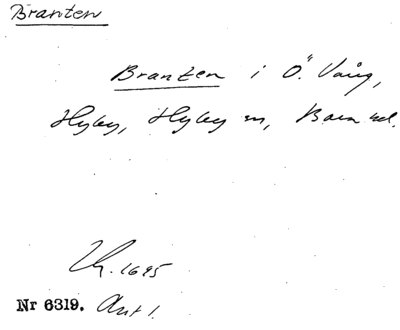 Branten
Branten i Ö. Vång,
Hyby, Hyby sn, Bara hd.
Lh. 1695
Nr 6319. Avt 1.